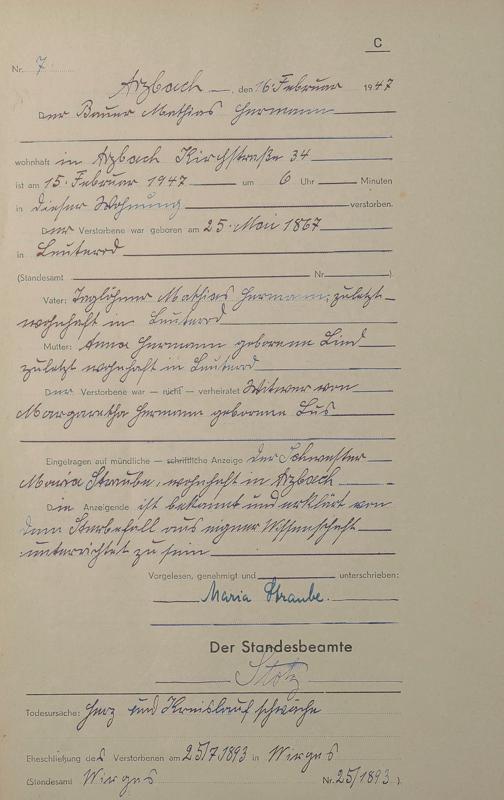 C
Nr. 7
Arzbach, den 16 Februar 1947
Der Bauer Mathias Hermann
wohnhaft in Arzbach Kirchstraße 34
ist am 15. Februar 1947 um 6 Uhr Minuten
in dieser Wohnung verstorben.
Der Verstorbene war geboren am 25. Mai 1867
in Leuterod
(Standesamt Nr. )
Vater: Taglöhner Mathias Hermann, zuletzt
wohnhaft in Leuterod
Mutter: Anna Hermann geborene Lind
zuletzt wohnhaft in Leuterod
Der Verstorbene war — nicht — verheiratet Witwer von
Margaretha Hermann geborene
Eingetragen auf mündliche — schriftliche Anzeige der Schwester
Maria Straube, wohnhaft in Arzbach
Die Anzeigende ist bekannt und erklärt von
dem Sterbefall aus eigner Wissenschaft
unterrichtet zu sein
Vorgelesen, genehmigt und unterschrieben:
Maria Straube.
Der Standesbeamte
Stotz
Todesursache: Herz und Kreislaufschwäche
Eheschließung des Verstorbenen am 25/7.1893 in Wirges
(Standesamt Wirges Nr. 25/1893 )